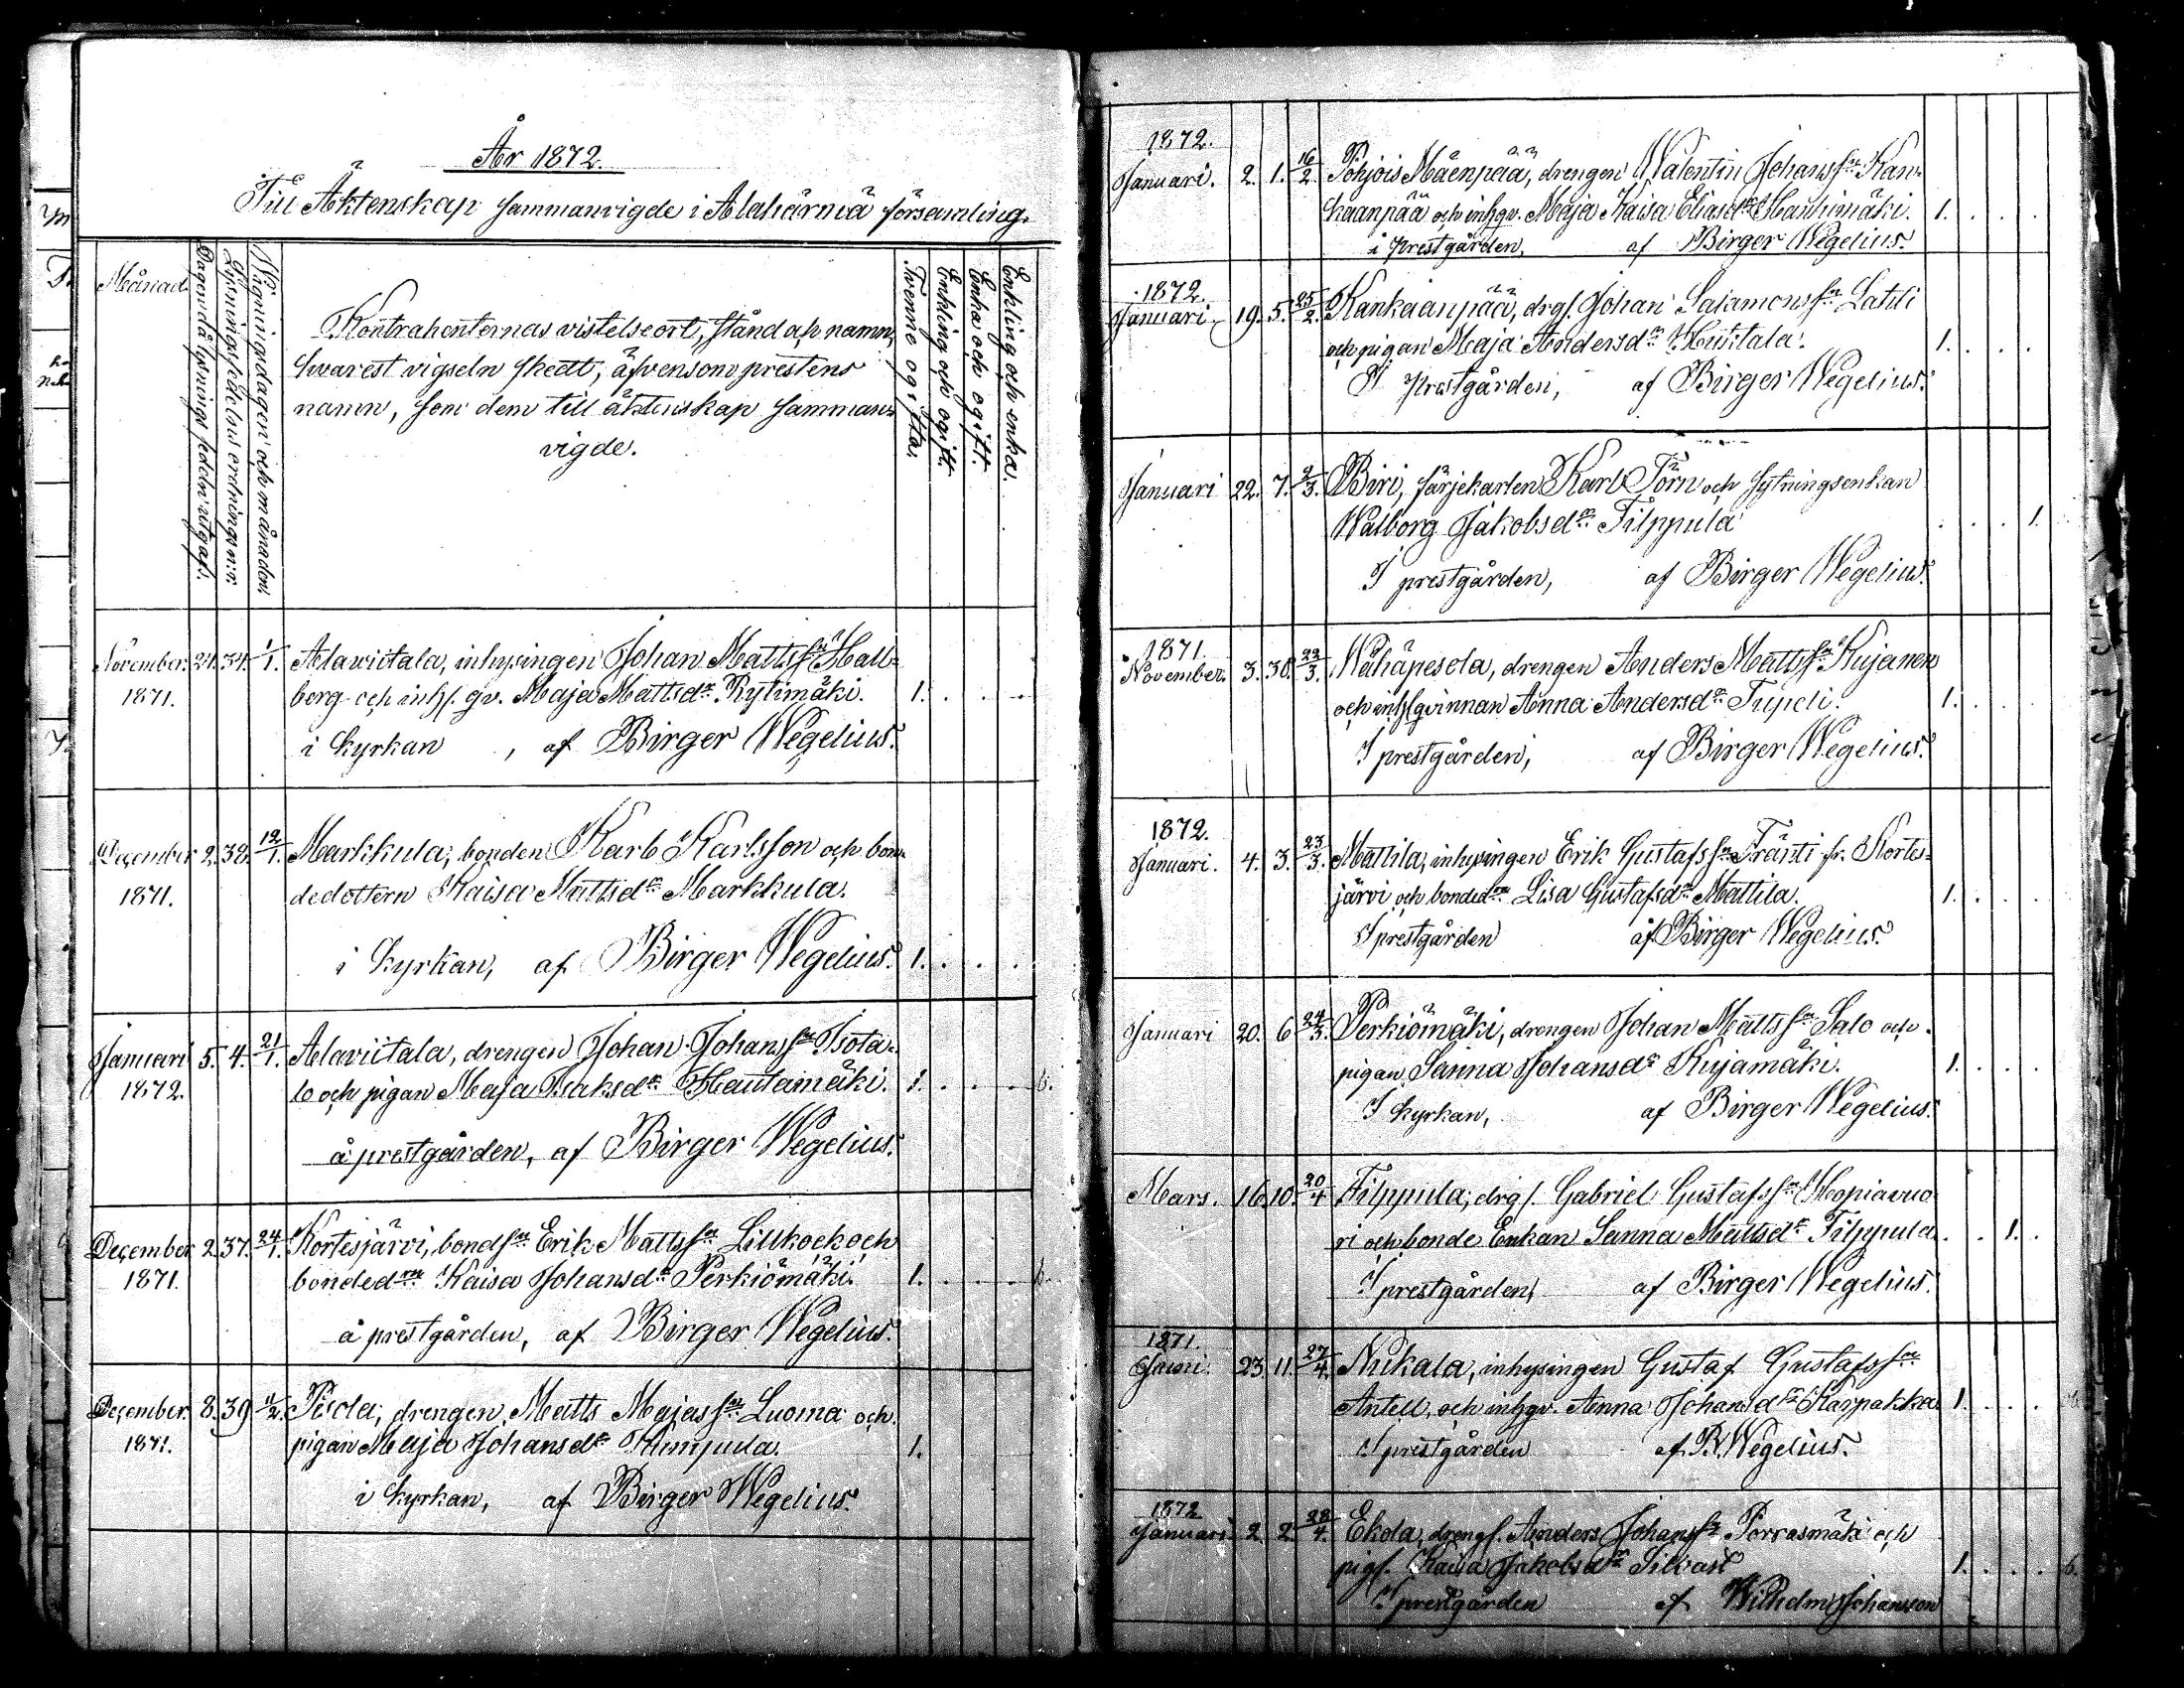 År 1872.
Till Äktenskap sammanvigde i Alahärmä församling.
Månad.
Dagen då lysnings sedeln utgafs.
Lysningssedelns ordnings n:r
Vigningsdagen och månaden.
Kontrahenternas vistelseort, stånd och namn,
hvarest vigseln skett, äfvensom prestens
namn, som dem till äktenskap samman-
vigde.
Tvenne ogifta.
Enkling och ogift.
Enka och ogift.
Enkling och enka.
November. 21. 34. 1/1. Alaviitala, inhysingen Johan Mattsson Hall-
1871. berg och inhs. qv. Maja Mattsdr Rytimäki. 1.
i kyrkan, af Birger Wegelius.
December 2. 38. 12/1. Markkula, bonden Karl Karlsson och bon-
1871. dedottern Kaisa Mattsdr Markkula.
i kyrkan, af Birger Wegelius. 1.
Januari 5. 4. 21/1. Alaviitala, drengen Johan Johansson Isota-
1872. lo och pigan Maja Isaksdr Hautamäki. 1.
å prestgården, af Birger Wegelius.
December 2. 37. 24/1. Kortesjärvi, bondsn Erik Mattsson Lillkock och
1871. bondedrn Kaisa Johansdr Perkiömäki. 1.
å prestgården, af Birger Wegelius.
December. 8. 39 drengen Matts Majasson Luoma och
1871. pigan Maja Johansdr 1.
i kyrkan, af Birger Wegelius.
1872.
Januari. 2. 1. 16/2. Pohjois Mäenpää, drengen Valentin Johansson Kan-
kaanpää och inhqv. Maja Kaisa Eliasdr 1.
i prestgården, af Birger Wegelius.
1872.
Januari. 19. 5. 25/2. Kankaanpää, drgs. Johan Salamonsson Latili
och pigan Maja Andersdr 1.
I prestgården, af Birger Wegelius.
Januari 22. 7. 2/3. Biri, färjekarlen Karl Törn och sytningsenkan
Walborg Jakobsdr Filppula 1.
I prestgården, af Birger Wegelius.
1871.
November. 3. 30. 22/3. Vähäpesola, drengen Anders Mattsson Kujanen
och inhsqvinnan Anna Andersdr 1.
I prestgården, af Birger Wegelius.
1872.
Januari. 4. 3. 23/3. Mattila, inhysingen Erik Gustafsson Fränti fr. Kortes-
järvi och bondedrn Lisa Gustafsdr Mattila. 1.
I prestgården af Birger Wegelius.
Januari 20. 6 24/3. Perkiömäki, drengen Johan Mattsson Salo och
pigan Sanna Johansdr Kujamäki. 1.
I kyrkan, af Birger Wegelius.
Mars. 16. 10. 20/4 Filppula, drgs. Gabriel Gustafsson Hopiavuo-
ri och bonde Enkan Sanna Mattsdr Filppula. 1.
I prestgården, af Birger Wegelius.
1871.
Juni. 23. 11. 27/4. Nikala, inhysingen Gustaf Gustafsson
Antell, och inhqv. Anna Johansdr Karpakka 1.
I prestgården af B. Wegelius.
1872
Januari 2. 2. 28/4. Ekola, drengs. Anders Johansson Porrasmäki och
pigs. Kaisa Jakobsdr Silvast 1.
I prestgården af Wilhelm Johansson